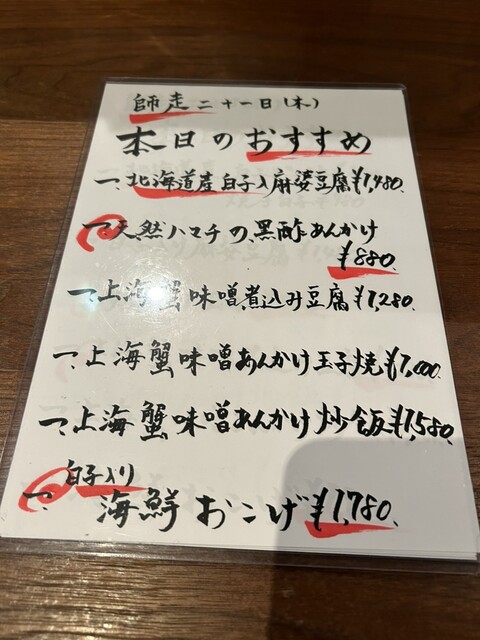 師走二十一日(木)
本日のおすすめ
一、北海道産白子入麻婆豆腐¥1,480.
一、天然ハマチの黒酢あんかけ
¥880.
一、上海蟹味噌煮込み豆腐¥1,280.
一、上海蟹味噌あんかけ玉子焼¥1,000.
一、上海蟹味噌あんかけ炒飯¥1,580.
白子入り
一、海鮮おこげ¥1,780.